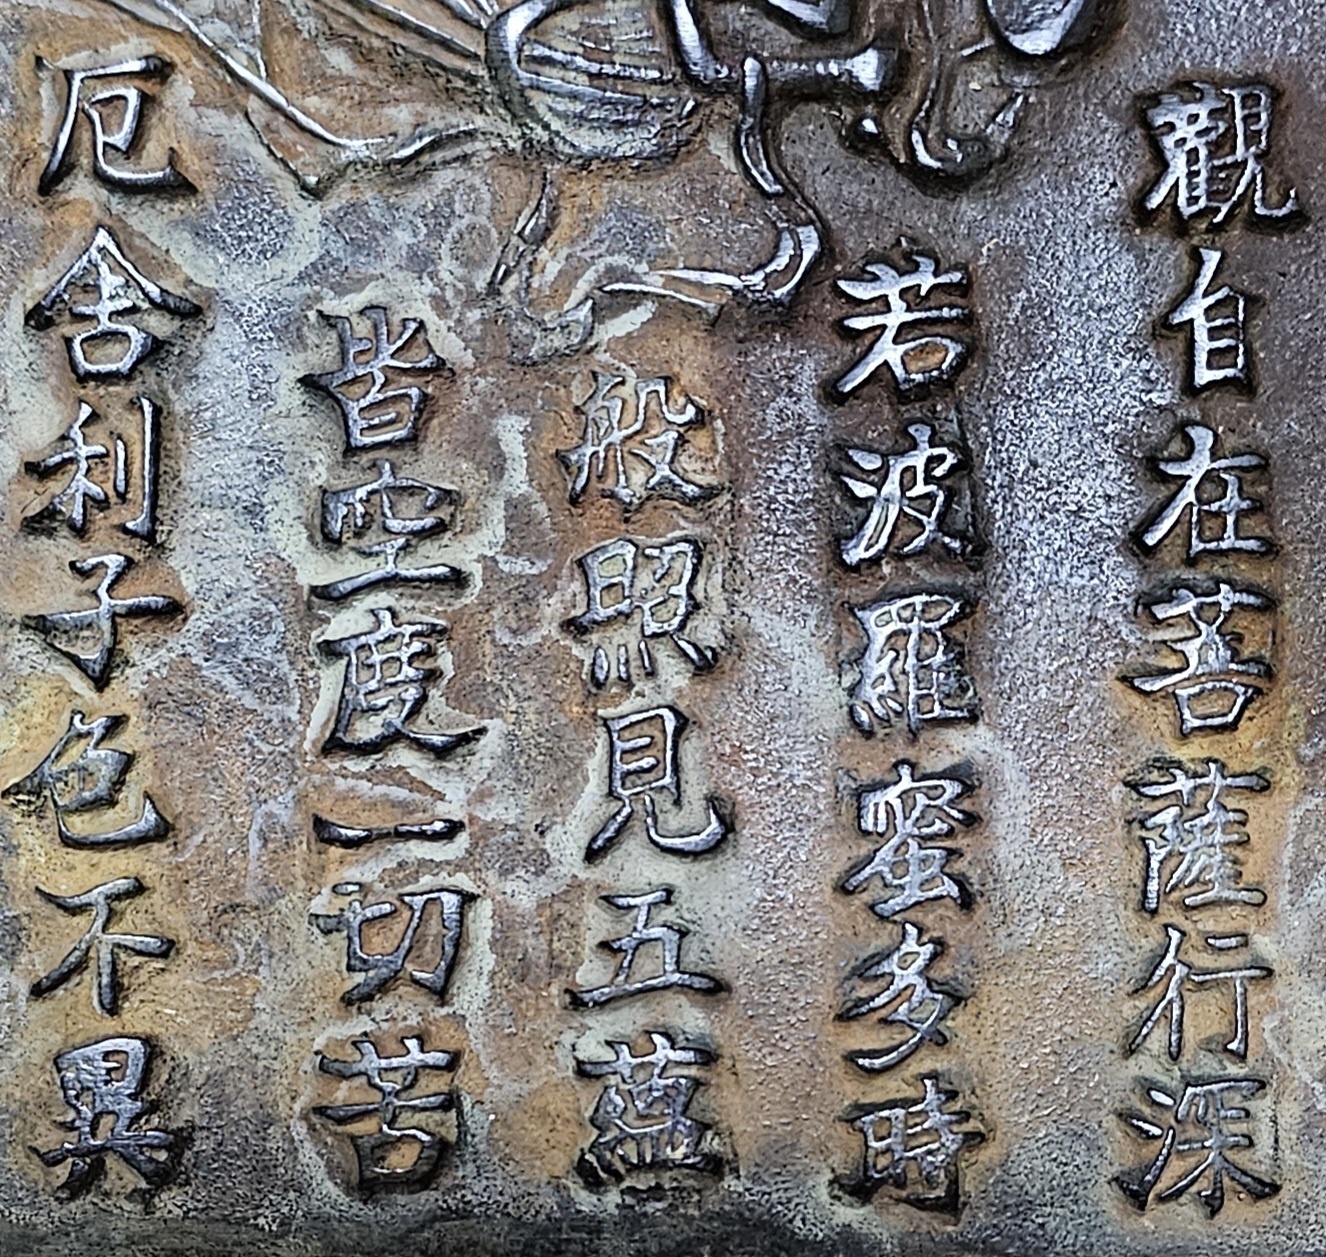 觀自在菩薩行深
若波羅蜜多時
般照見五蘊
皆空度一切苦
厄舍利子色不異